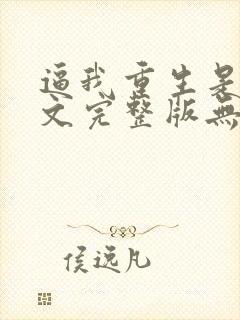 逼我重生是
文完整版無
侯遠凡